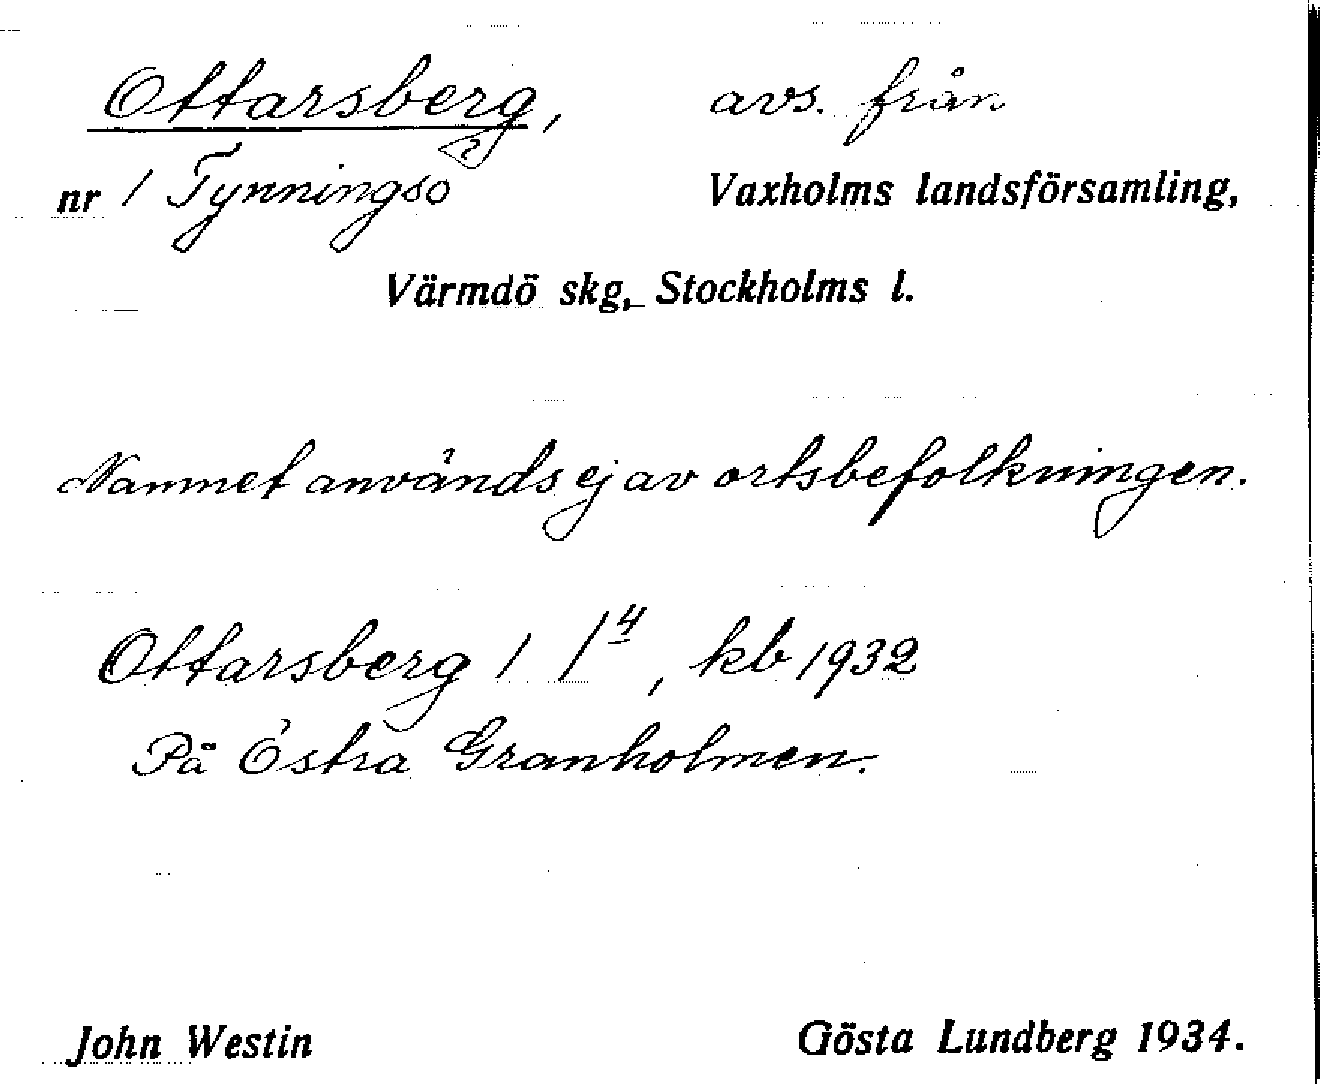 Ottarsberg, avs. från
nr 1 Tynningsö Vaxholms landsförsamling,
Värmdö skg, Stockholms l.
Namnet används ej av ortsbefolkningen.
Ottarsberg 1 1⁴, kb 1932
På Östra Granholmen.
John Westin Gösta Lundberg 1934.